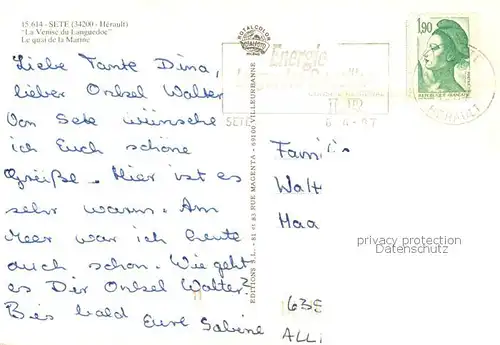 15.614 - SETE (34200 - Hérault)
"La Venise du Languedoc"
Le quai de la Marine
Liebe Tante Dina,
lieber Onkel Walter
Von Sete wünsche
ich Euch schöne
Grüße. Hier ist es
sehr warm. Am
Meer war ich heute
auch schon. Wie geht
es Dir Onkel Walter?
Bis bald Eure Sabine
EDITIONS S.L. - 81 et 83 RUE MAGENTA - 69100 VILLEURBANNE
ROYALCOLOR
Energie
SETE
1,90
REPUBLIQUE FRANÇAISE
HERAULT
Famili
Walt
Haa
privacy protection
Datenschutz
638
ALLI